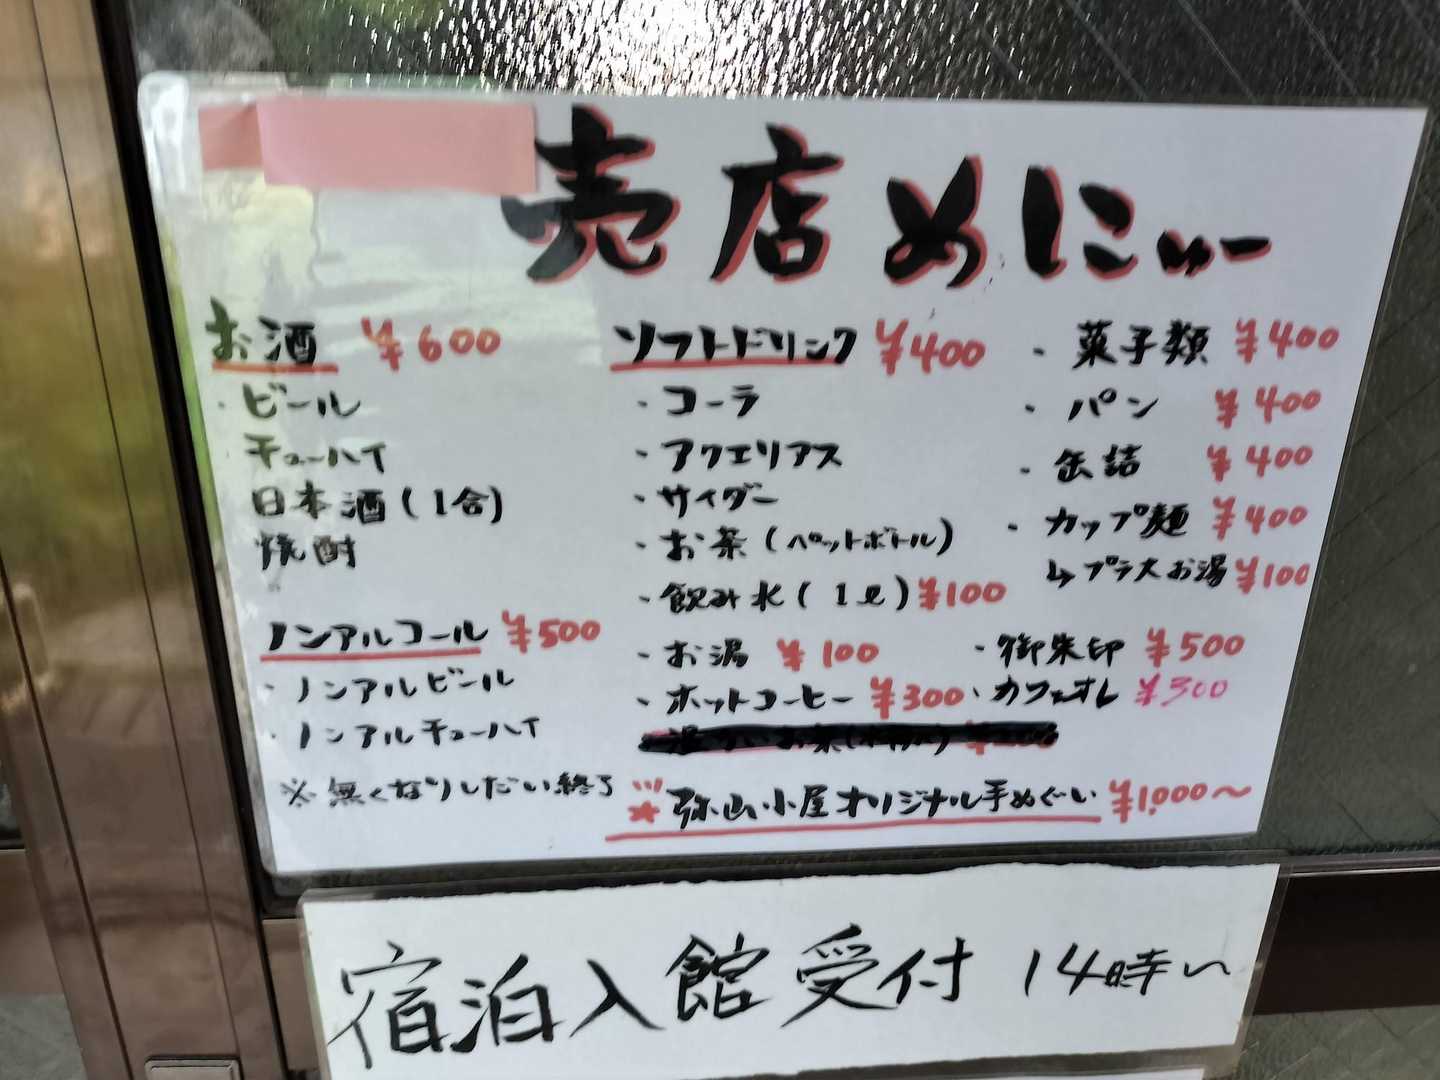 売店めにゅー
お酒 ¥600
・ビール
チューハイ
日本酒(1合)
焼酎
ノンアルコール ¥500
・ノンアルビール
・ノンアルチューハイ
※無くなりしだい終了
ソフトドリンク ¥400
・コーラ
・アクエリアス
・サイダー
・お茶(ペットボトル)
・飲み水(1ℓ)¥100
・お湯 ¥100
・ホットコーヒー ¥300
・菓子類 ¥400
・パン ¥400
・缶詰 ¥400
・カップ麺 ¥400
↳プラ大お湯¥100
・御朱印 ¥500
・カフェオレ ¥300
※弥山小屋オリジナル手ぬぐい ¥1,000〜
宿泊入館受付 14時〜